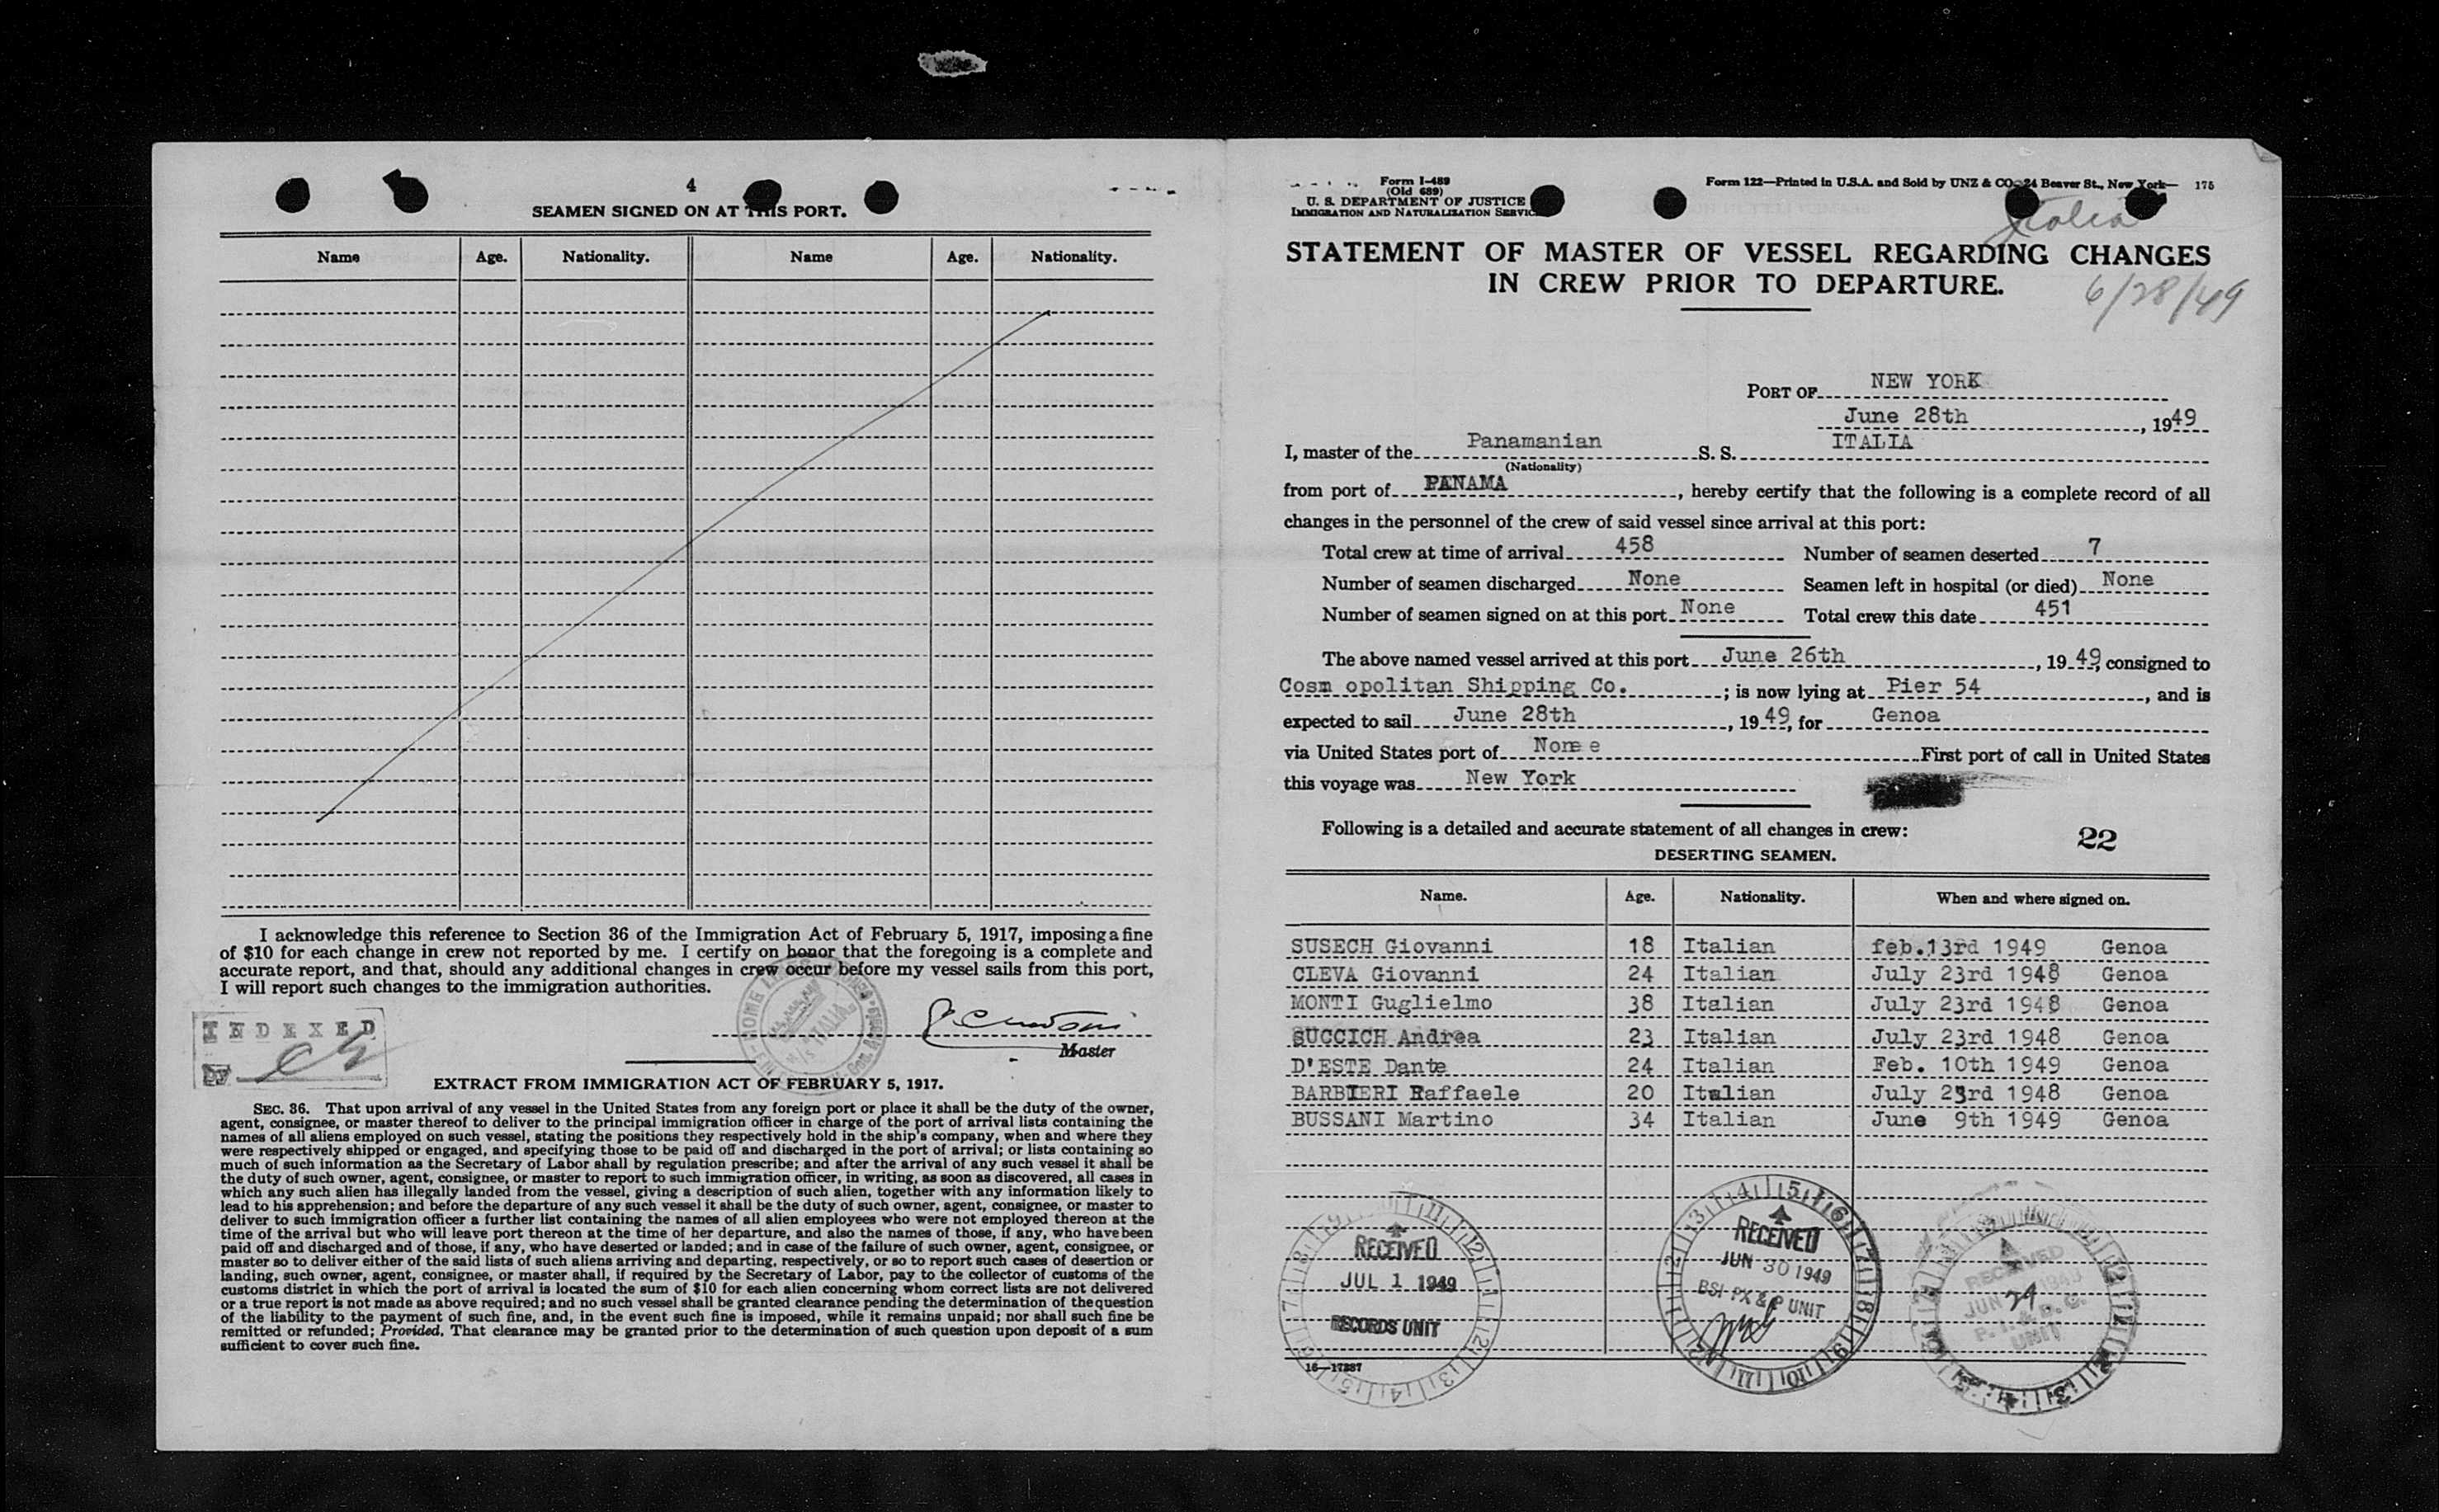 4
SEAMEN SIGNED ON AT THIS PORT.
Name Age. Nationality. Name Age. Nationality.
I acknowledge this reference to Section 36 of the Immigration Act of February 5, 1917, imposing a fine
of $10 for each change in crew not reported by me. I certify on honor that the foregoing is a complete and
accurate report, and that, should any additional changes in crew occur before my vessel sails from this port,
I will report such changes to the immigration authorities.
INDEXED
BY
Master
EXTRACT FROM IMMIGRATION ACT OF FEBRUARY 5, 1917.
SEC. 36. That upon arrival of any vessel in the United States from any foreign port or place it shall be the duty of the owner,
agent, consignee, or master thereof to deliver to the principal immigration officer in charge of the port of arrival lists containing the
names of all aliens employed on such vessel, stating the positions they respectively hold in the ship's company, when and where they
were respectively shipped or engaged, and specifying those to be paid off and discharged in the port of arrival; or lists containing so
much of such information as the Secretary of Labor shall by regulation prescribe; and after the arrival of any such vessel it shall be
the duty of such owner, agent, consignee, or master to report to such immigration officer, in writing, as soon as discovered, all cases in
which any such alien has illegally landed from the vessel, giving a description of such alien, together with any information likely to
lead to his apprehension; and before the departure of any such vessel it shall be the duty of such owner, agent, consignee, or master to
deliver to such immigration officer a further list containing the names of all alien employees who were not employed thereon at the
time of the arrival but who will leave port thereon at the time of her departure, and also the names of those, if any, who have been
paid off and discharged and of those, if any, who have deserted or landed; and in case of the failure of such owner, agent, consignee, or
master so to deliver either of the said lists of such aliens arriving and departing, respectively, or so to report such cases of desertion or
landing, such owner, agent, consignee, or master shall, if required by the Secretary of Labor, pay to the collector of customs of the
customs district in which the port of arrival is located the sum of $10 for each alien concerning whom correct lists are not delivered
or a true report is not made as above required; and no such vessel shall be granted clearance pending the determination of the question
of the liability to the payment of such fine, and, in the event such fine is imposed, while it remains unpaid; nor shall such fine be
remitted or refunded; Provided, That clearance may be granted prior to the determination of such question upon deposit of a sum
sufficient to cover such fine.
Form I-489
(Old 689)
U. S. DEPARTMENT OF JUSTICE
IMMIGRATION AND NATURALIZATION SERVICE
Form 122—Printed in U.S.A. and Sold by UNZ & CO. 24 Beaver St., New York— 175
Italia
STATEMENT OF MASTER OF VESSEL REGARDING CHANGES
IN CREW PRIOR TO DEPARTURE.
6/28/49
PORT OF NEW YORK
June 28th, 1949
I, master of the Panamanian S. S. ITALIA
(Nationality)
from port of PANAMA, hereby certify that the following is a complete record of all
changes in the personnel of the crew of said vessel since arrival at this port:
Total crew at time of arrival 458 Number of seamen deserted 7
Number of seamen discharged None Seamen left in hospital (or died) None
Number of seamen signed on at this port None Total crew this date 451
The above named vessel arrived at this port June 26th, 1949, consigned to
Cosm opolitan Shipping Co. ; is now lying at Pier 54, and is
expected to sail June 28th, 1949, for Genoa
via United States port of None First port of call in United States
this voyage was New York
Following is a detailed and accurate statement of all changes in crew:
22
DESERTING SEAMEN.
Name. Age. Nationality. When and where signed on.
SUSECH Giovanni 18 Italian feb.13rd 1949 Genoa
CLEVA Giovanni 24 Italian July 23rd 1948 Genoa
MONTI Guglielmo 38 Italian July 23rd 1948 Genoa
SUCCICH Andrea 23 Italian July 23rd 1948 Genoa
D'ESTE Dante 24 Italian Feb. 10th 1949 Genoa
BARBIERI Raffaele 20 Italian July 23rd 1948 Genoa
BUSSANI Martino 34 Italian June 9th 1949 Genoa
RECEIVED
JUL 1 1949
RECORDS UNIT
RECEIVED
JUN 30 1949
BSI-PX & P UNIT
RECEIVED
JUN 29 1949
UNIT
16—17287